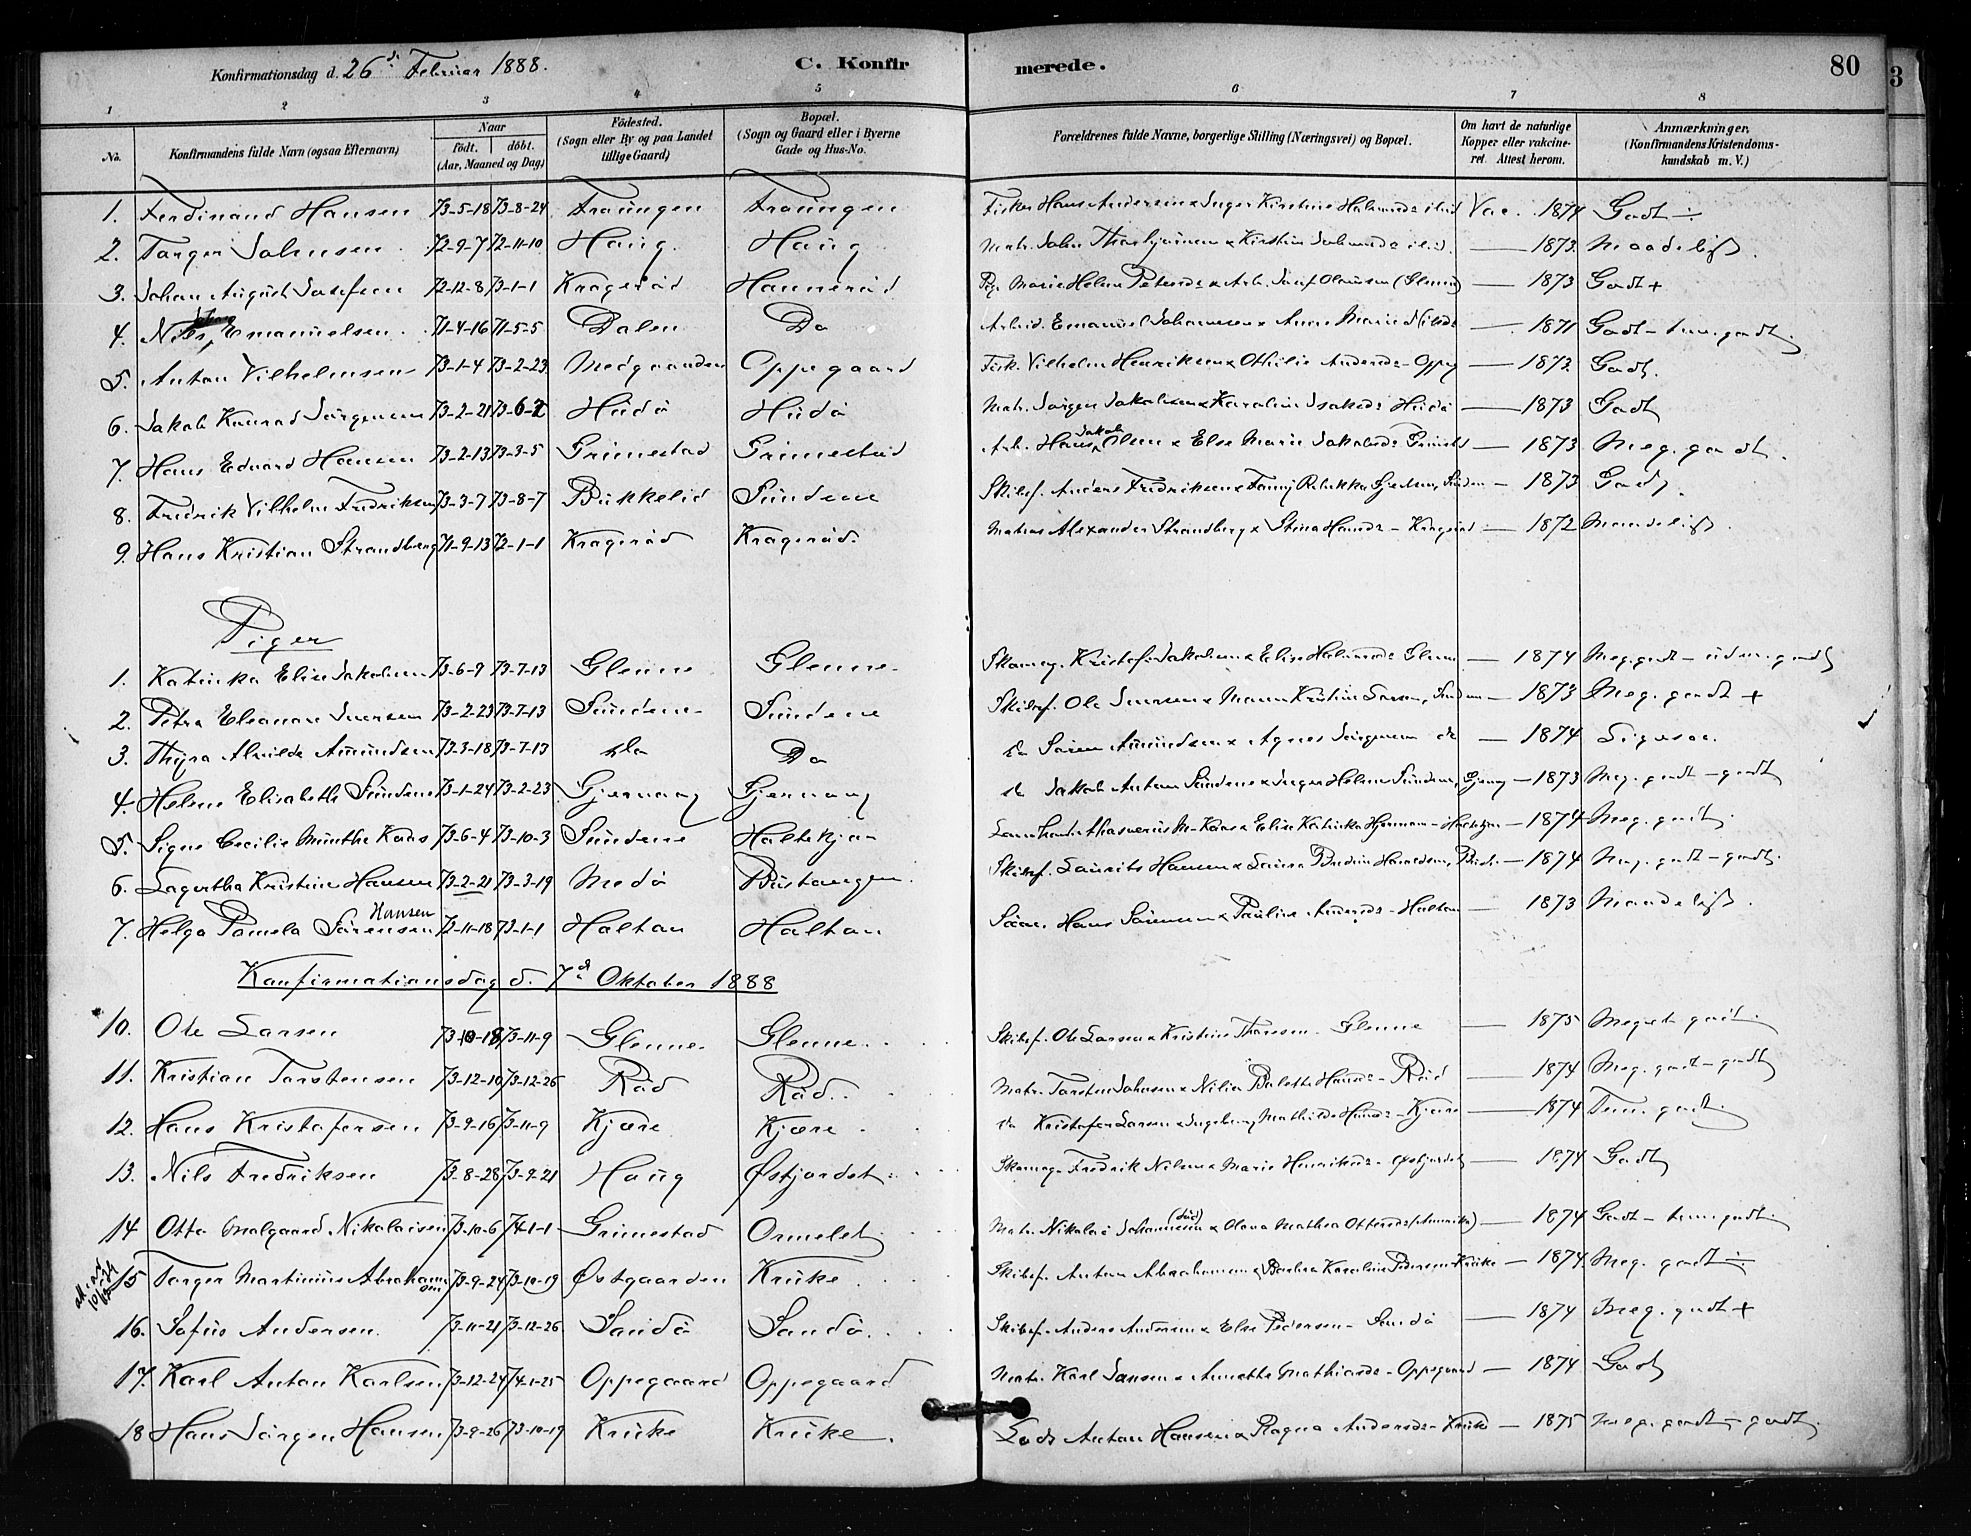 Konfirmationsdag d. 26 Februar 1888. C. Konfirmerede. 80
1 2 3 4 5 6 7 8
No. Konfirmandens fulde Navn (ogsaa Efternavn) Naar födt. döbt. (Aar, Maaned og Dag) Födested. (Sogn eller By og paa Landet tillige Gaard) Bopæl. (Sogn og Gaard eller i Byerne Gade og Hus-No. Forældrenes fulde Navne, borgerlige Stilling (Næringsvei) og Bopæl. Om havt de naturlige Kopper eller vakcineret. Attest herom. Anmærkninger, (Konfirmandens Kristendomskundskab m. V.)
1. Ferdinand Hansen 73-5-18 73-8-24 Traungen Traungen Fisker Hans Andersen x Inger Kirstine Vac. 1874 Godt ÷
2. Torger Johnsen 72-9-7 72-11-10 Haug Haug Matr. John 1873 Maadeligt.
3. Johan August Josefsen 72-12-8 73-1-1 Kragerød Hannerød Pg. Marie Helene Petersd. x Arb. Josef (Glenne) — 1873 Godt +
4. Nils Johan Emanuelsen 71-4-16 71-5-5 Dalen Do Arbeid. Emanuel Johannesen x Anne Marie — 1871 Godt – tem. godt
5. Anton Vilhelmsen 73-1-4 73-2-23 Medgaarden Oppegaard Fisk. Vilhelm Henriksen x Othilie Andersd. – Oppeg — 1873 Godt.
6. Jakob Konrad Jørgensen 73-2-21 73-6-2 Hudø Hudø Matr. Jørgen Jakobsen x Karoline Isaksd. Hudø — 1873 Godt
7. Hans Edvard Hansen 73-2-13 73-3-5 Grimestad Grimestad Arb. Hans Jakob Olsen x Else Marie Jakobsd. — 1873 Meg. godt.
8. Fredrik Vilhelm Fredriksen 73-3-7 73-8-7 Bukkelid Sundene Skibsf. Anders Fredriksen x Fanny Rebekka — 1873 Godt.
9. Hans Kristian Strandberg 71-9-13 72-1-1 Kragerød Kragerød Matros Alexander Strandberg x Stina Hansd. – Kragerød — 1872 Maadeligt.
Piger
1. Katinka Elise Jakobsen 73-6-9 73-7-13 Glenne Glenne Skomag. Kristof. Jakobsen x Elise Glenne — 1874 Meg. godt – udm. godt
2. Petra Eleonore Iversen 73-2-23 73-7-13 Sundene Sundene Skibsf. Ole Iversen x Maren Kristine Larsen, Sunden — 1873 Meg. godt +
3. Thyra Alvilde Amundsen 73-3-18 73-7-13 do Do do Søren Amundsen x Agnes Jørgensen do — 1874 Ligesaa.
4. Helene Elisabeth Sundene 73-1-24 73-2-23 Gjervaag Gjervaag do Jakob Anton Sundene x Inger Helene Sundene, Gjerv — 1873 Meg. godt – godt
5. Signe Cecilie Munthe Kaas 73-6-4 73-10-3 Sundene Haltekjær M. Kaas x Elise Katinka — 1874 Meg. godt.
6. Lagertha Kristine Hansen 73-2-21 73-3-19 Medø Bustangen Skibsf. Laurits Hansen x Laura — 1874 Meg. godt – godt.
7. Helga Pamela Sørensen Hansen 72-11-18 73-1-1 Holtan Holtan Hans Sørensen x Pauline Andersd. – Holtan — 1873 Maadeligt.
Konfirmationsdag d. 7d Oktober 1888
10. Ole Larsen 73-10-18 73-11-9 Glenne Glenne Skibsf. Ole Larsen x Kristine Thorsen – Glenne — 1875 Meget godt.
11. Kristian Torstensen 73-12-10 73-12-26 Rød Rød Matr. Torsten Johnsen x Nilia Bolette Hansd. – Rød — 1874 Meg. godt – godt
12. Hans Kristofersen 73-9-16 73-11-9 Kjære Kjære do Kristofer Larsen x Ingeborg Mathilde Hansd. – Kjære — 1874 Tem. godt.
13. Nils Fredriksen 73-8-28 73-9-21 Haug Østjordet Skomag. Fredrik Nilsen x Marie Henriksd. – Østjordet — 1874 Godt
14 Otto Malgaard Nikolaisen 73-10-6 74-1-1 Grimestad Ormelet Matr. Nikolai Johannesen (død) x Olava Mathea Ottersd. (Amerika) — 1874 Godt – tem. godt.
15 Torger Martinius Abrahamsen 73-9-24 73-10-19 Østgaarden Kruke Skibsf. Anton Abrahamsen x Karoline Pedersen – Kruke — 1874 Meg. godt ÷
16. Sofus Andersen. 73-11-21 73-12-26 Sandø Sandø Skibsf. Anders Andersen x Else Pedersen – Sandø — 1874 Meg. godt +
17. Karl Anton Karlsen 73-12-24 74-1-25 Oppegaard Oppegaard Matr. Karl Jansen x Annette Mathiasd. – Oppegaard — 1874 Godt
18 Hans Jørgen Hansen 73-9-26 73-10-19 Kruke Kruke. Lods Anton Hansen x Ragna Andersd. – Kruke — 1875 Meg. godt – godt.